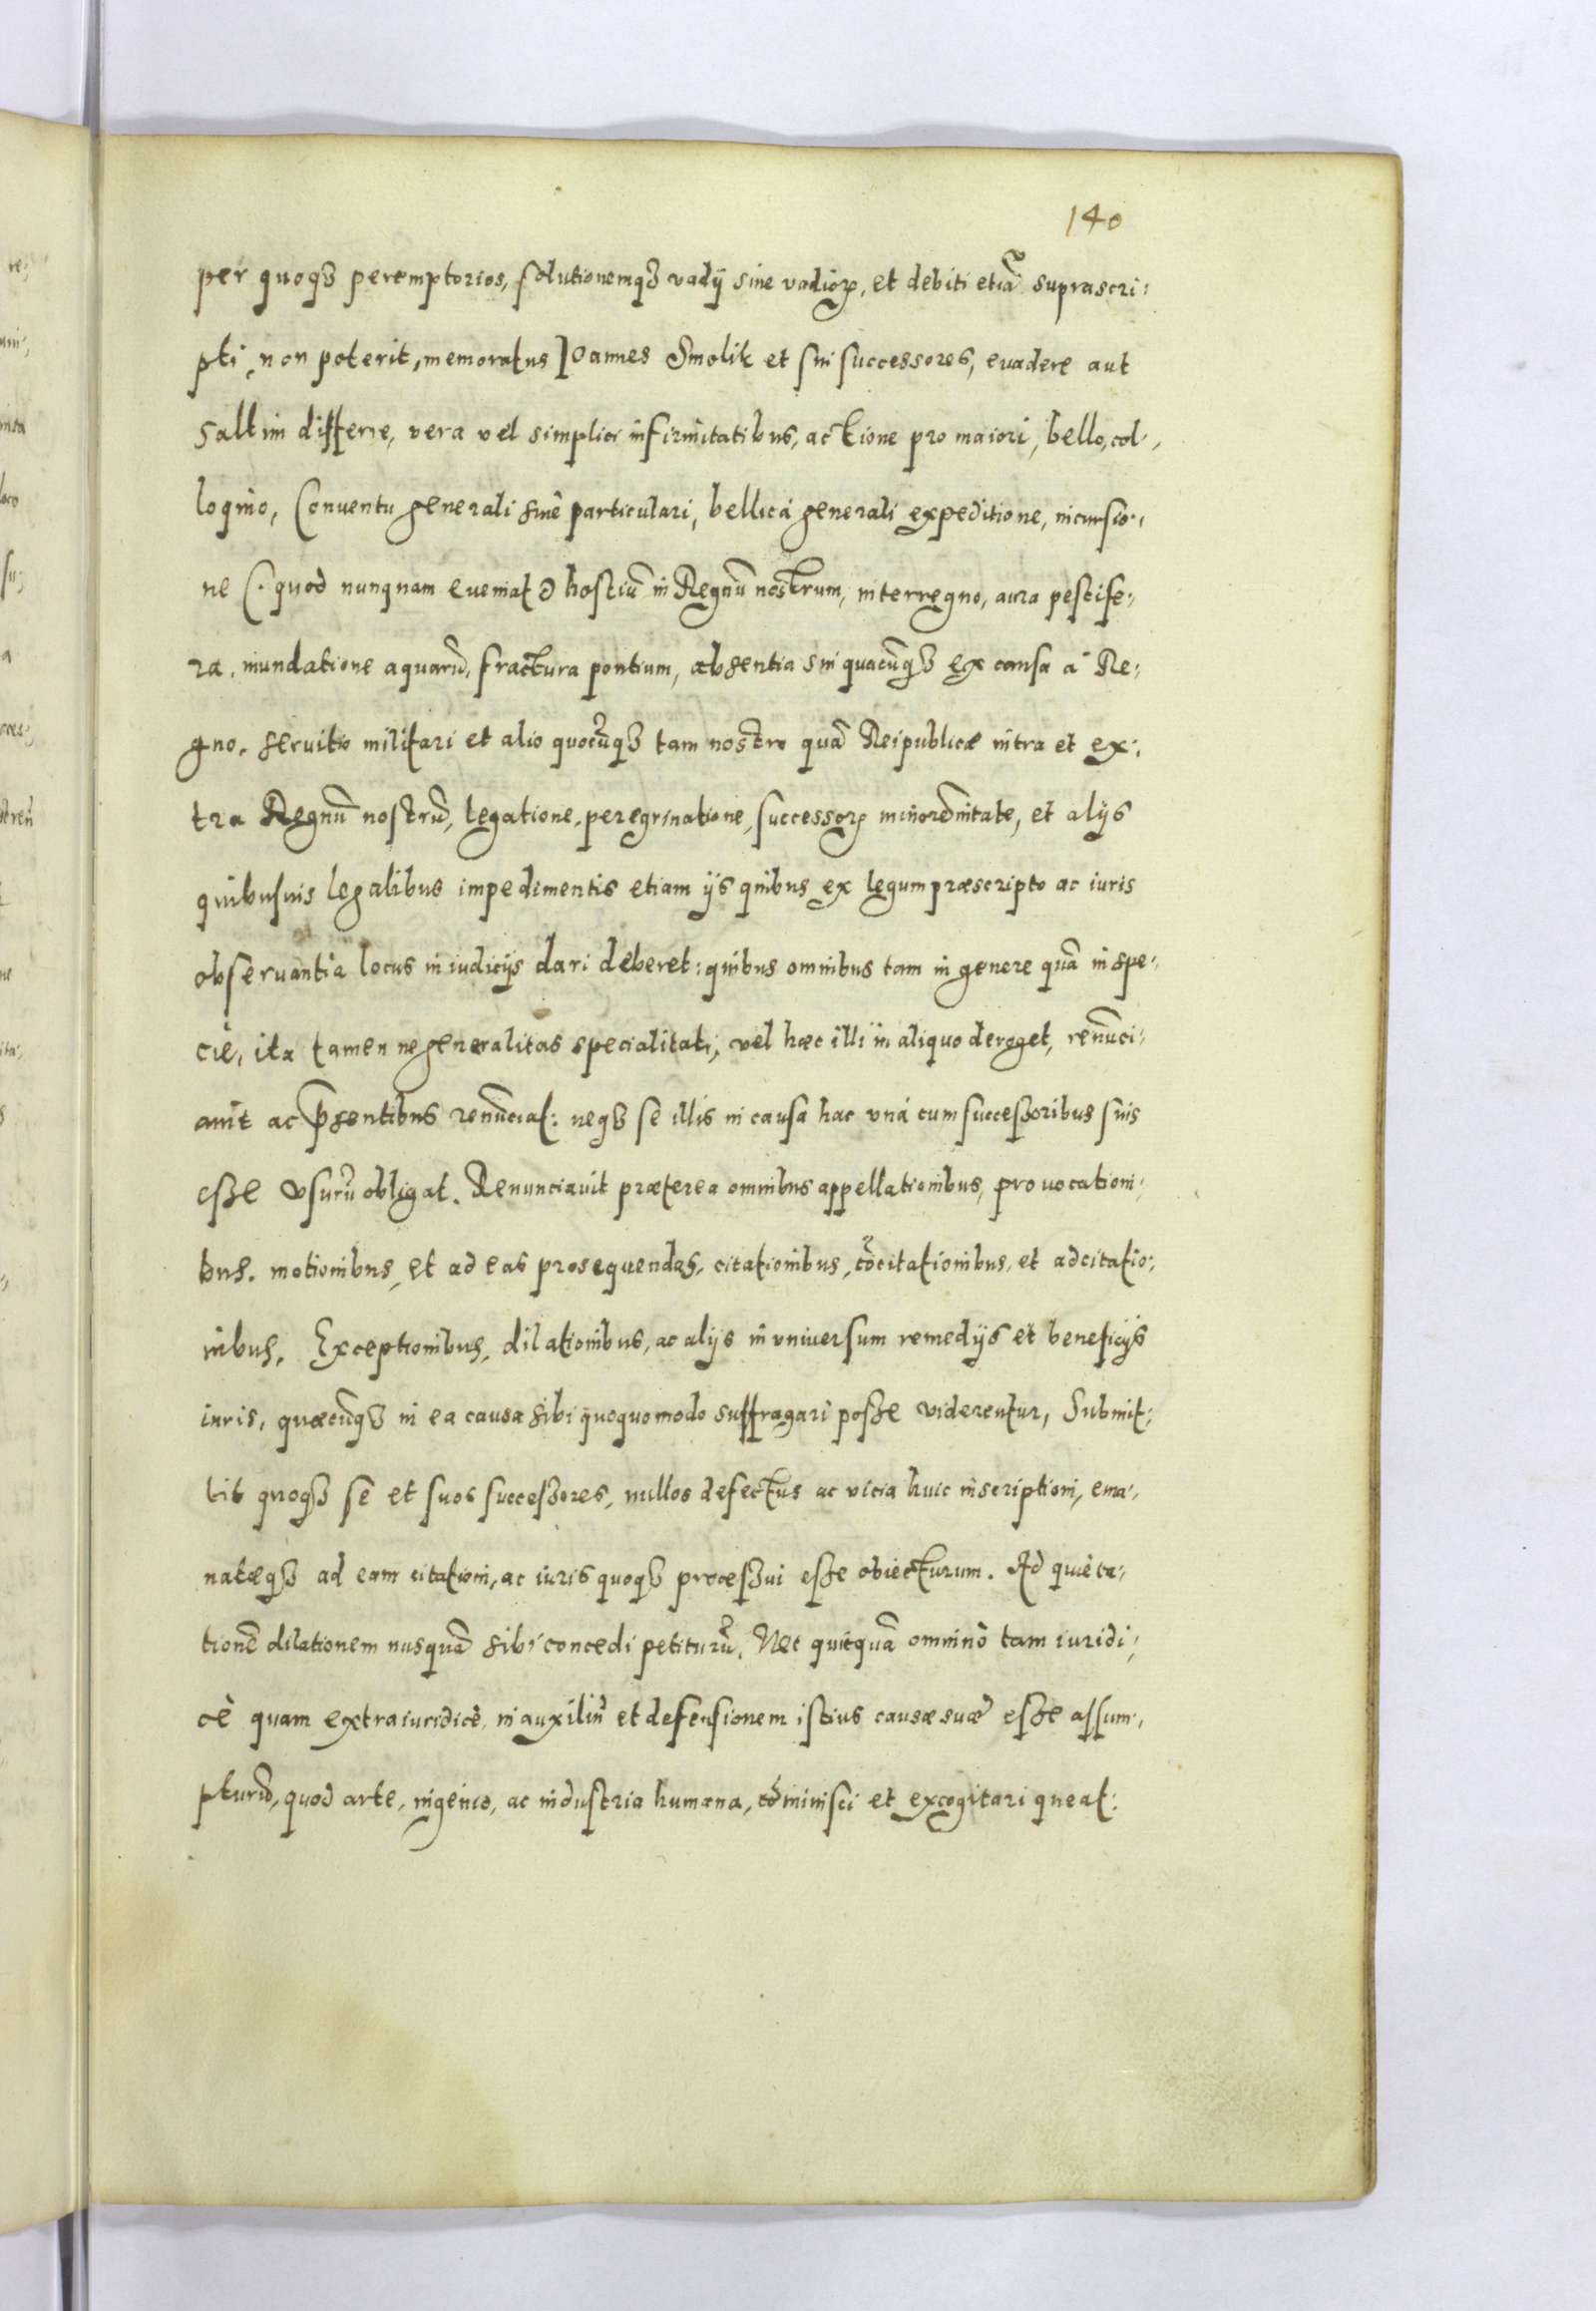 140
per quoqȝ peremptorios, solutionemqȝ vadij siue vadioꝝ, et debiti etiã suprascri:
pti, non poterit, memoratus Ioannes Smolik et sui successores, euadere aut
saltim differre, vera vel simplici infirmitatibus, actione pro maiori, bello, col:
loquio, Conuentu generali siuè particulari, bellicá generali expeditione, incursio:
ne (. quod nunquam eueniat .) hostiũ in Regnũ nostrum, interregno, aura pestife:
ra, inundatione aquarũ, fractura pontium, absentia sui quacũqȝ ex causa à Re:
gno, seruitio militari et alio quocũqȝ tam nostro quã Reipublicæ intra et ex:
tra Regnũ nostrũ, legatione, peregrinatione, successoꝝ minorẽnitate, et alijs
quibusuis legalibus impedimentis etiam ijs quibus ex legum præscripto ac iuris
obseruantia locus in iudicijs dari deberet: quibus omnibus tam in genere quã in spe:
ciè, ita tamen ne generalitas specialitati, vel hæc illi in aliquo deroget, renũci:
auit ac p̃sentibus renũciat: neqȝ se illis in causa hac vná cum successoribus suis
esse vsurũ obligat. Renunciauit præterea omnibus appellationibus, prouocationi:
bus, motionibus, et ad eas prosequendas, citationibus, cõcitationibus, et adcitatio:
nibus, Exceptionibus, dilationibus, ac alijs in vniuersum remedijs et beneficijs
iuris, quæcũqȝ in ea causa sibi quoquomodo suffragari posse viderentur, Submit:
tit quoqȝ se et suos successores, nullos defectus ac vicia huic inscriptioni, ema:
natæqȝ ad eam citationi, ac iuris quoqȝ processui esse obiecturum. Ad quieta:
tionẽ dilationem nusquã sibi concedi petiturũ. Nec quicquã omninò tam iuridi:
cè quam extraiuridicè, in auxiliũ et defensionem istius causæ suæ esse assum:
pturũ, quod arte, ingenio, ac industria humana, cõminisci et excogitari queat: